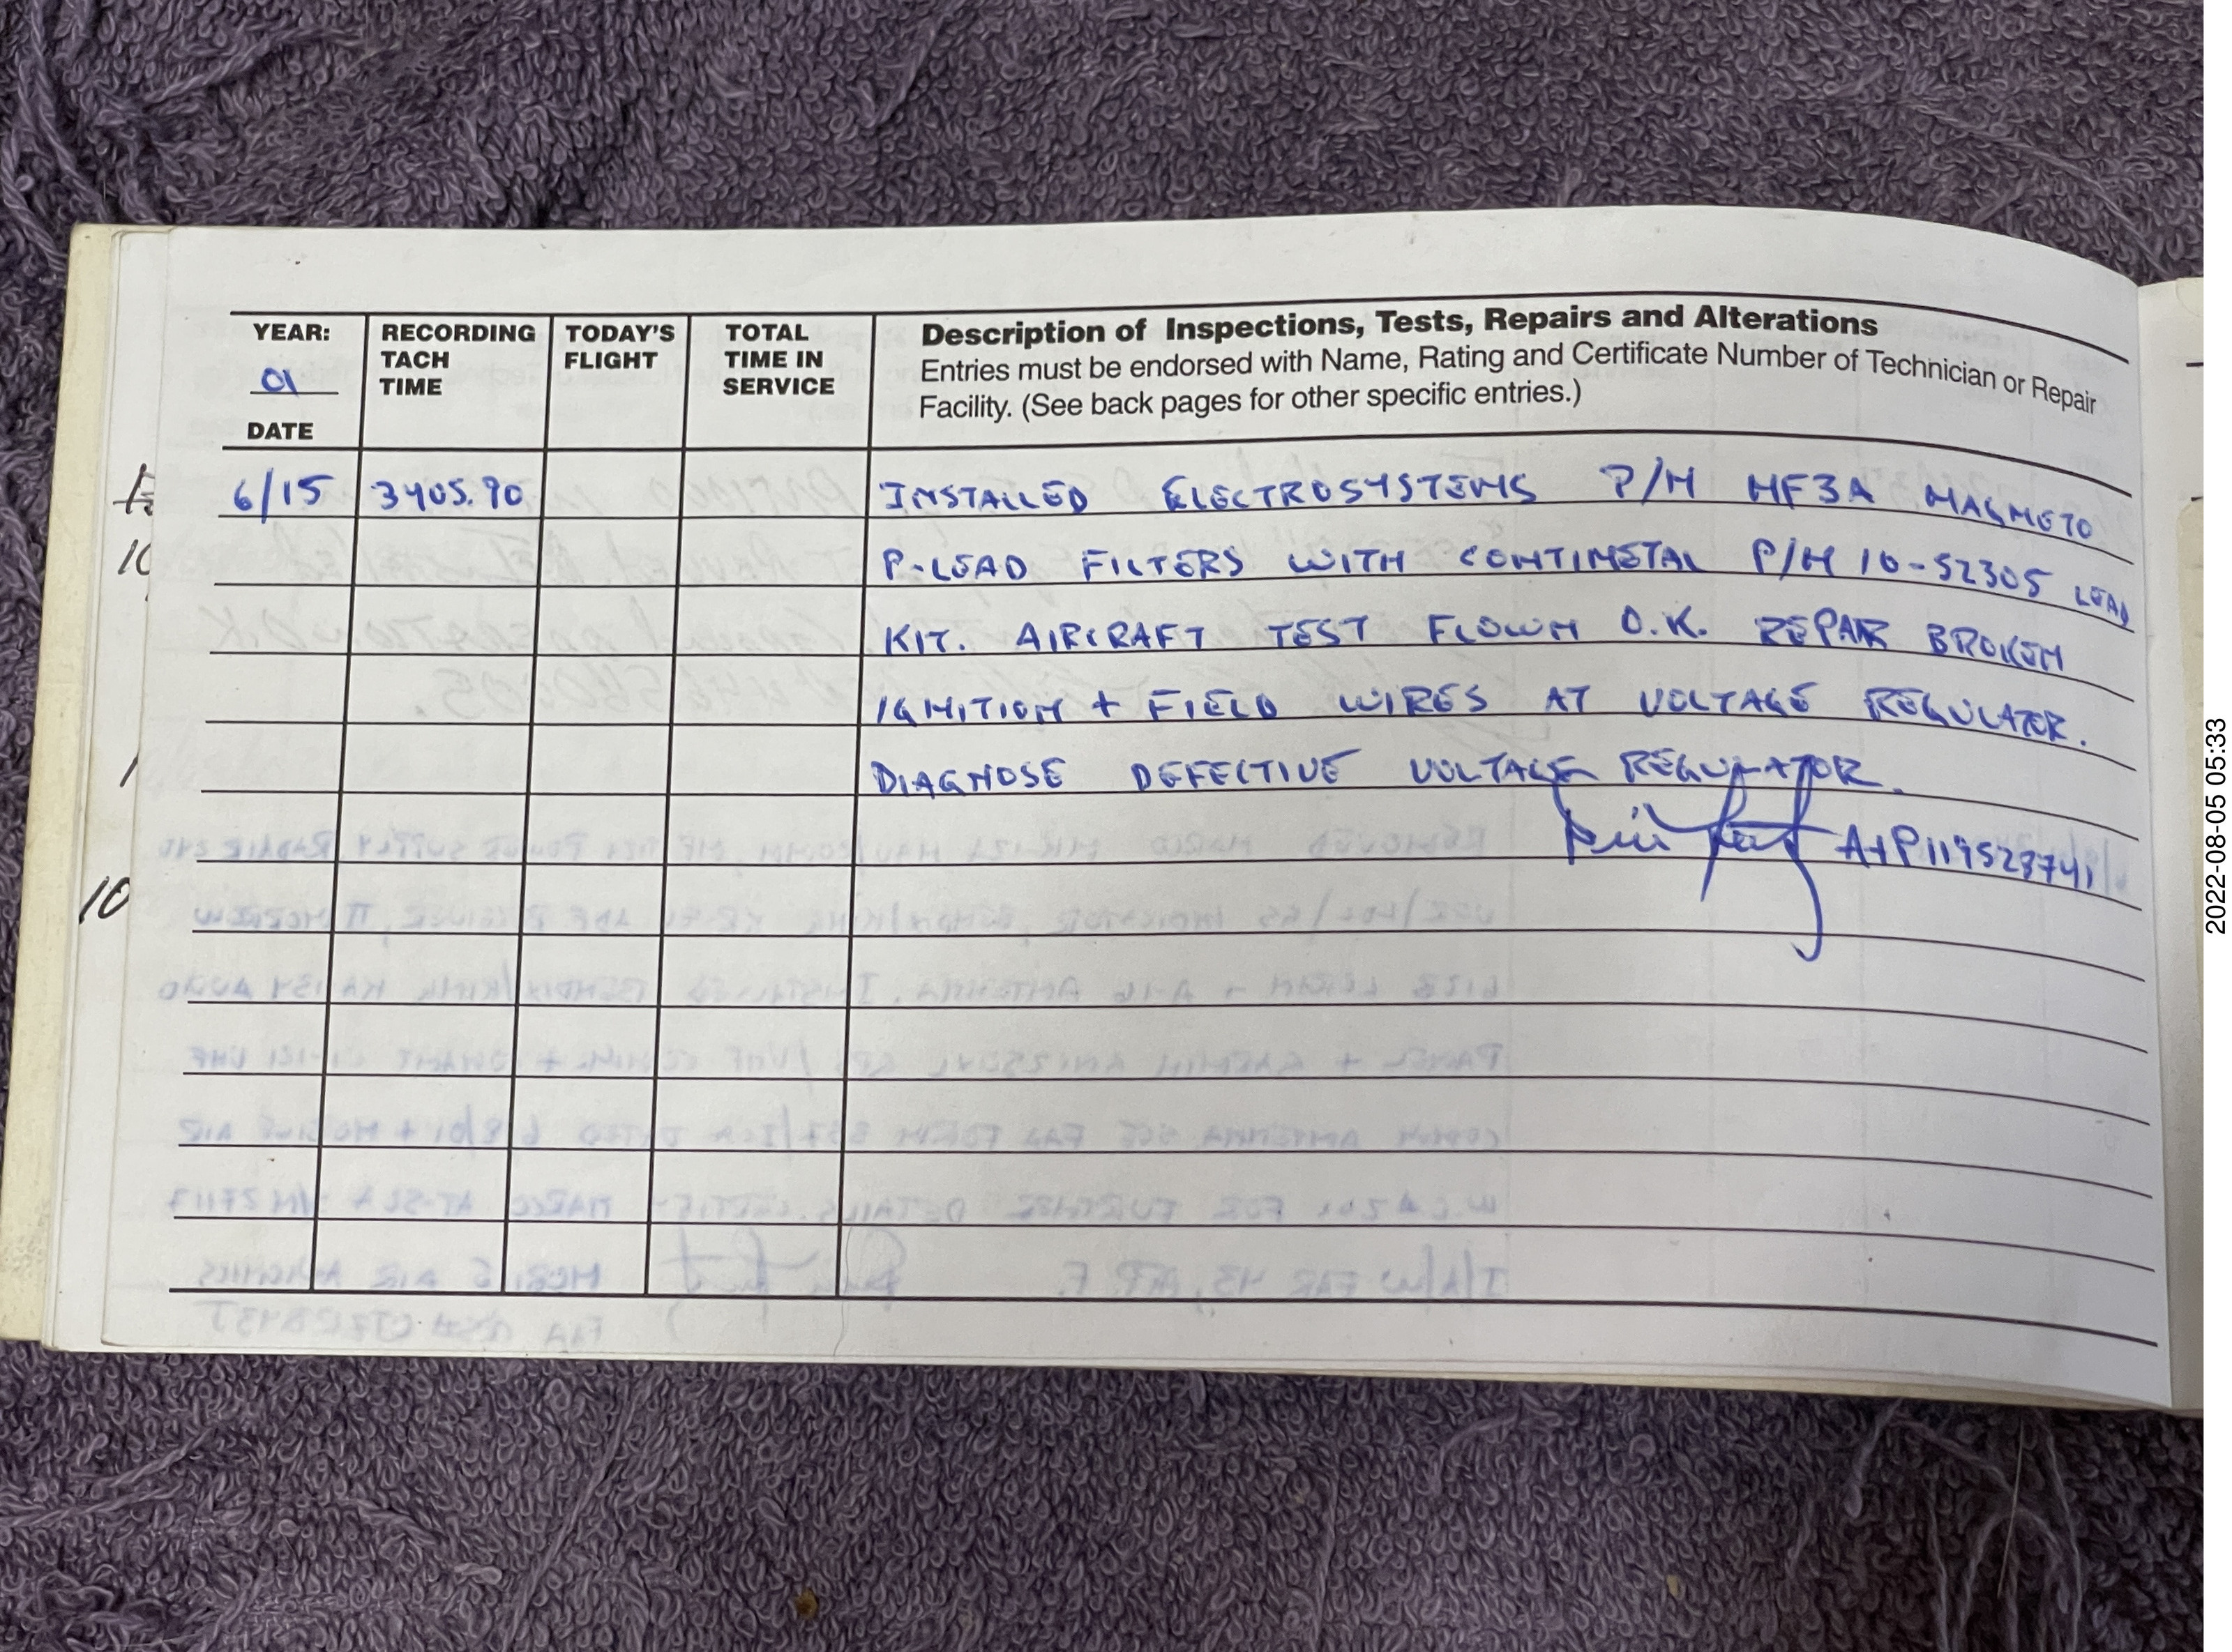 YEAR: RECORDING TODAY'S TOTAL Description of Inspections, Tests, Repairs and Alterations
TACH FLIGHT TIME IN Entries must be endorsed with Name, Rating and Certificate Number of Technician or Repair
01 TIME SERVICE Facility. (See back pages for other specific entries.)
DATE
6/15 3405.90 INSTALLED ELECTROSYSTEMS P/N HF3A MAGNETO
P-LEAD FILTERS WITH CONTINETAL P/N 10-52305 LEAD
KIT. AIRCRAFT TEST FLOWN O.K. REPAIR BROKEN
IGNITION + FIELD WIRES AT VOLTAGE REGULATOR.
DIAGNOSE DEFECTIVE VOLTAGE REGULATOR.
A+P
10
2022-08-05 05:33